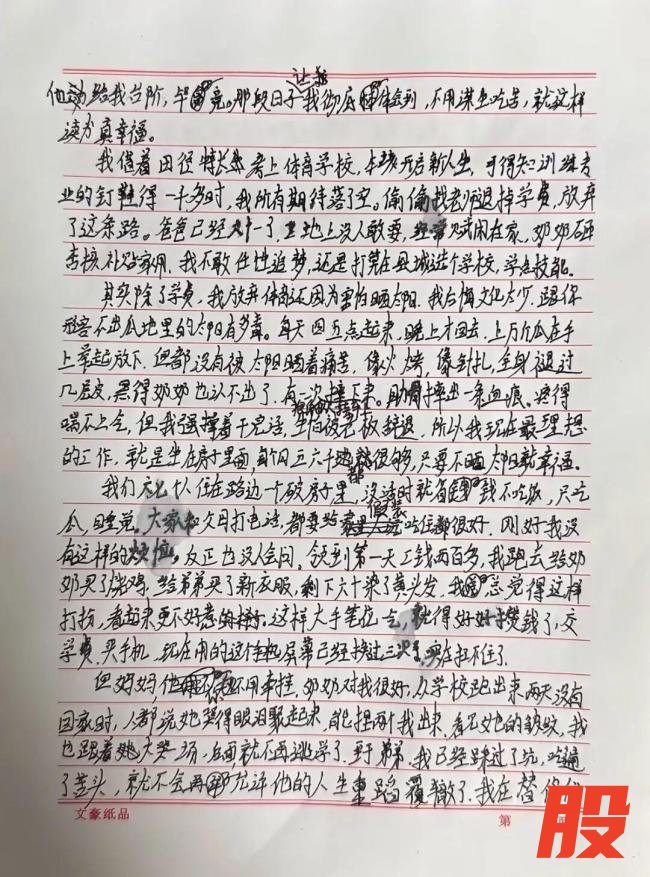 让我
他劝给我台阶，毕竟。那段日子我彻底体会到，不用谋生吃苦，就这样
读书真幸福。
我借着田径特长考上体育学校，本该开启新人生，可得知训练专
业的钉鞋得一千多时，我所有期待落了空。偷偷找老师退掉学费，放弃
了这条路。爸爸已经六十一了，工地上没人敢要，经常赋闲在家，奶奶砸
核补贴家用，我不敢任性追梦，还是打算在县城选个学校，学点技能。
其实除了学费，我放弃体育还因为害怕晒太阳。我后悔文化太少，跟你
形容不出瓜地里的太阳有多毒。每天四五点起来，晚上才回去，上万斤瓜在手
上拿起放下，但都没有被太阳晒着痛苦，像火烤，像针扎，全身褪过
几层皮，黑得奶奶也认不出了。有一次摔下来，肋骨摔出一条血痕，疼得
喘不上气，但我强撑着干完活，生怕被老板辞退，所以我现在最理想
的工作，就是坐在房子里面，每个月五六千就很够，只要不晒太阳就幸福。
我们几个人住在路边一个破房子里，没活时就省钱不吃饭，只吃
瓜，睡觉。大家和父母打电话，都要假装吃住都很好，刚好我没
有这样的烦恼。反正也没人会问。领到第一天工钱两百多，我跑去给奶
奶买了烧鸡，给弟弟买了新衣服，剩下六十染了黄头发，我总觉得这样
打扮，看起来更不好惹的样子。这样大手笔花完，就得好好攒钱了，交
学费，买手机，现在用的这个手机屏幕已经换过三次，实在扛不住了。
但妈妈他不用牵挂，奶奶对我很好，从学校跑出来两天没有
回家时，人都说她哭得眼泪聚起来，能捏两个我出来，看见她的皱纹，我
也跟着她大哭一场，后面就不再逃学了。至于弟弟，我已经踩过了坑，吃遍
了苦头，就不会再允许他的人生重蹈覆辙了。我在替
文豪纸品
第
股